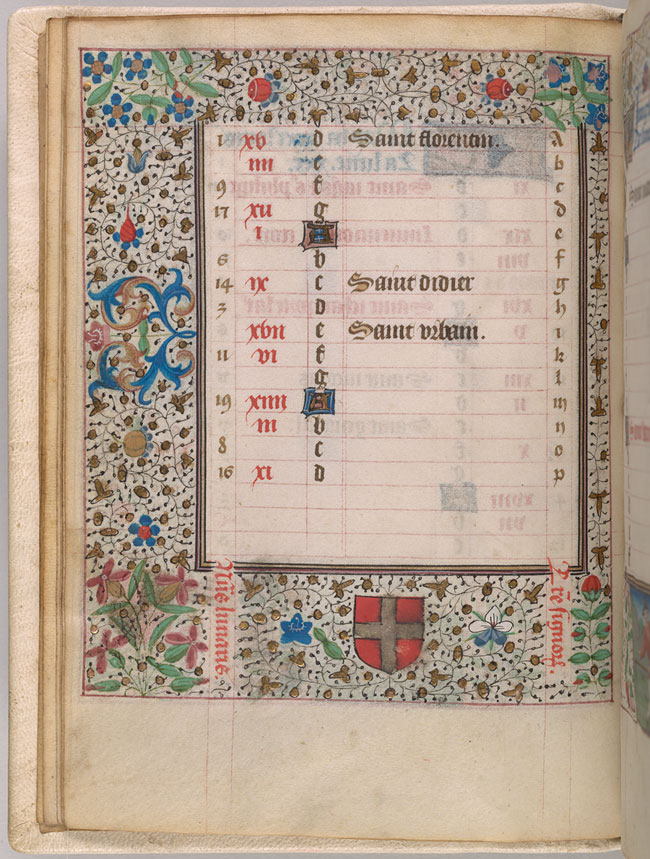 1 xv d Saint florentin. a
iiii e b
9 f c
17 xii g d
i A e
6 b f
14 ix c Saint didier g
3 d h
xvii e Saint urbain. i
11 vi f k
g l
19 xiiii A m
iii b n
8 c o
16 xi d p